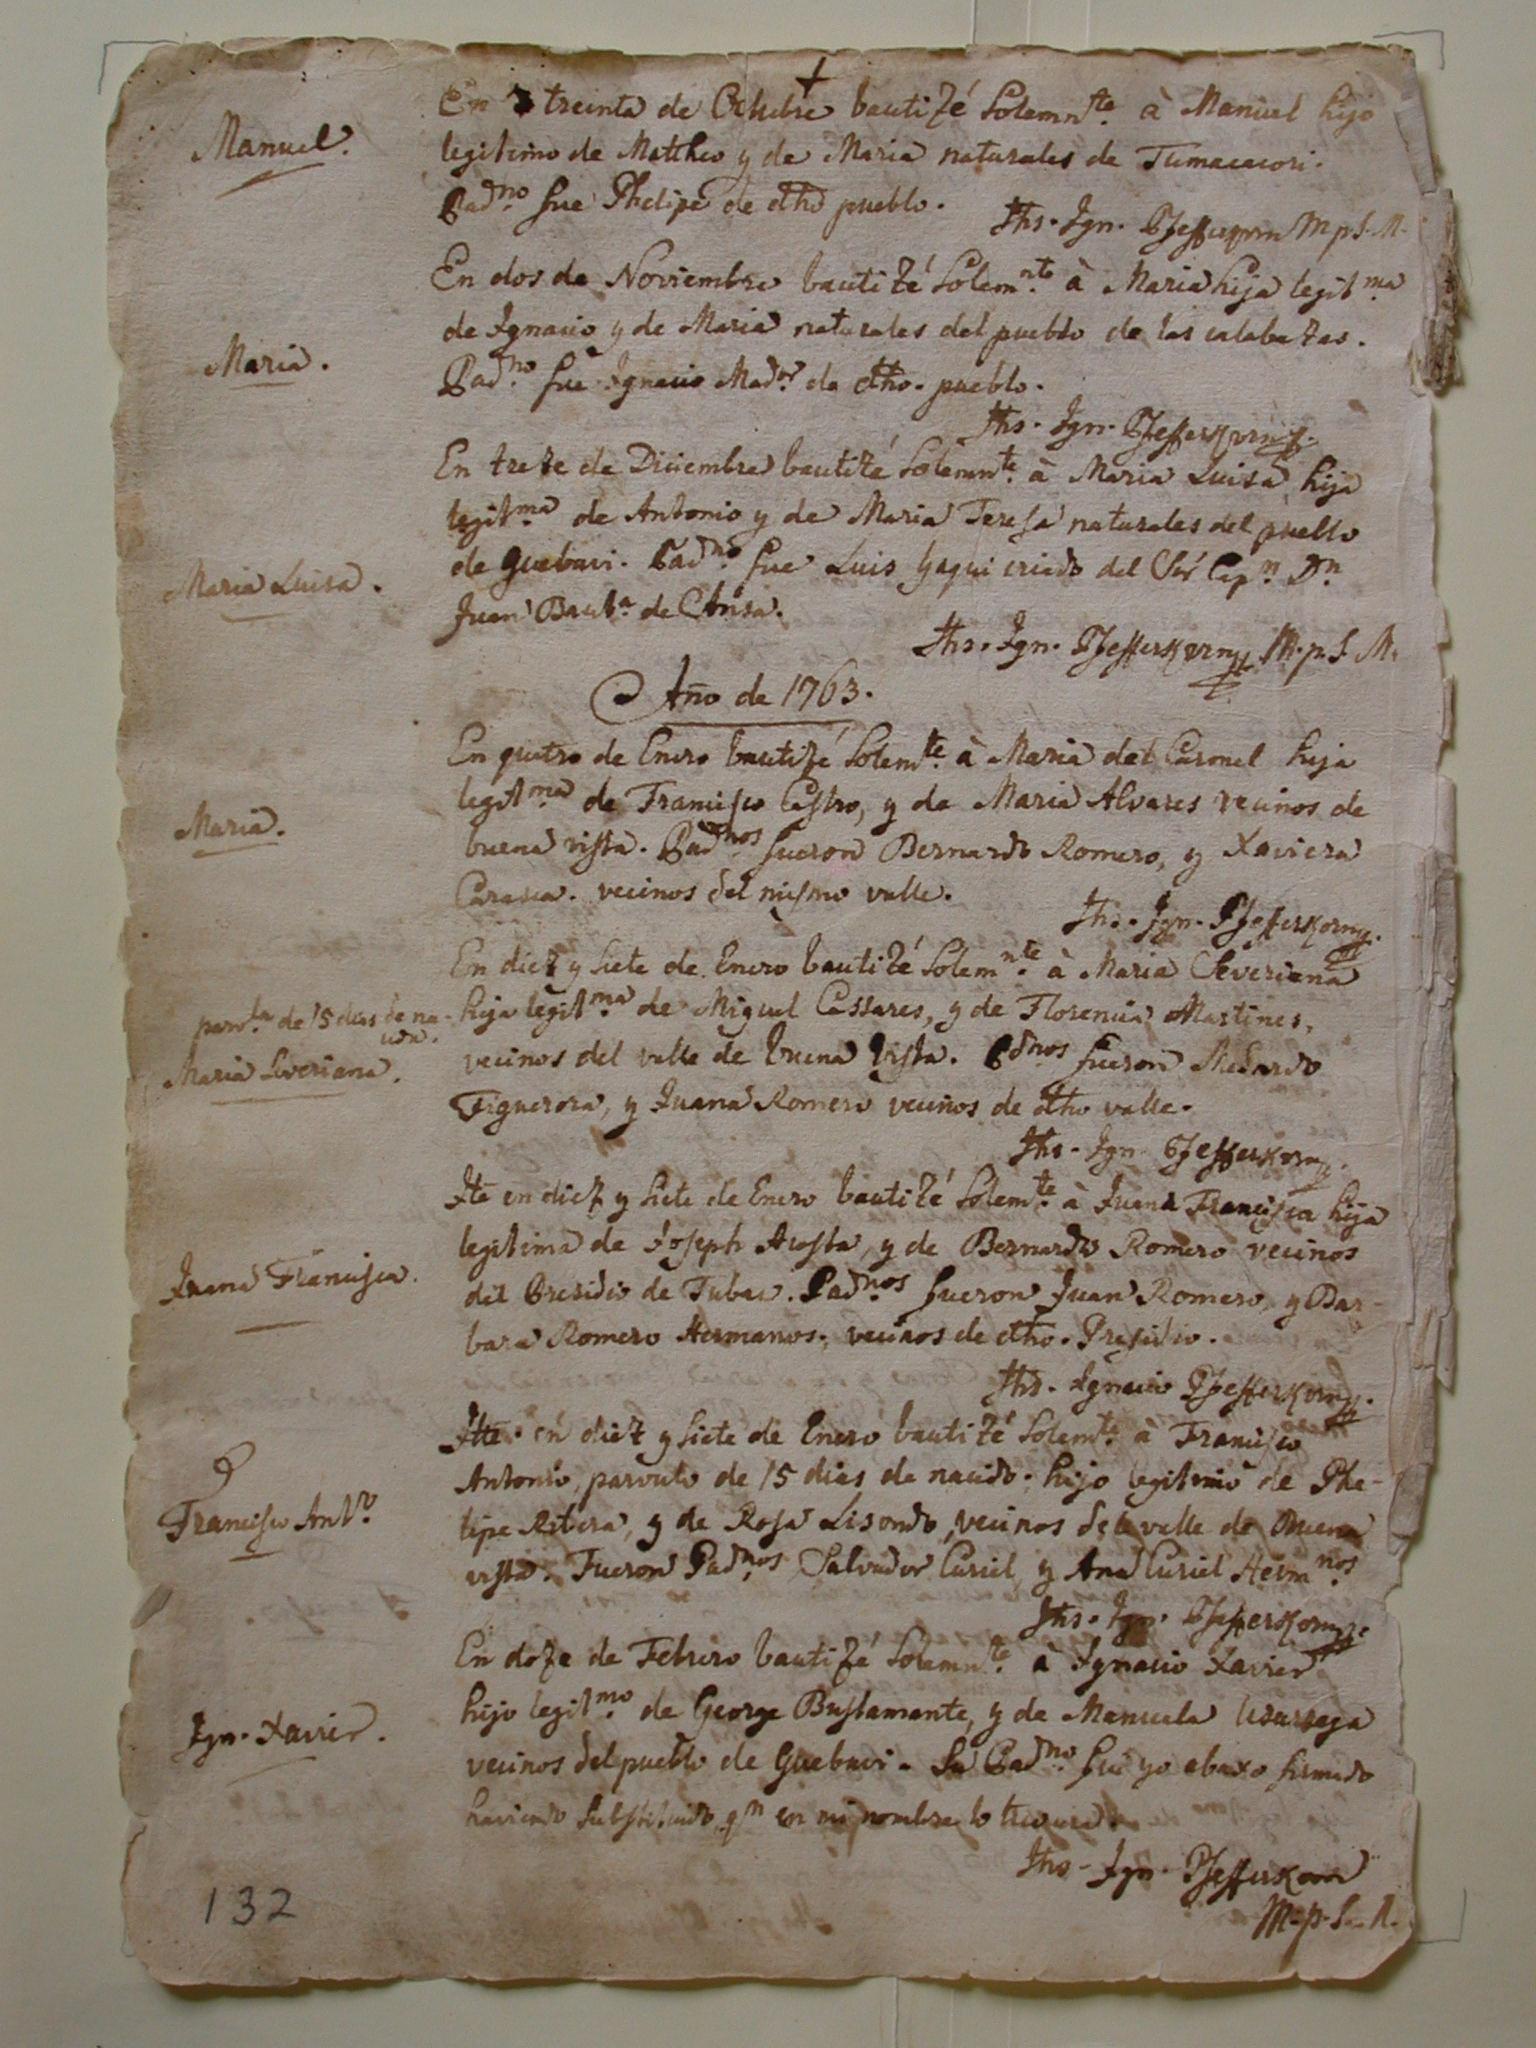 +
En treinta de Octubre bautizé Solemnte. à Manuel hijo
Manuel.
legitimo de Mattheo y de Maria naturales de Tumacacori.
Padno. fue Phelipe de dtho pueblo.
Jhs. Ign. Pfefferkorn M p S. M.
En dos de Noviembre bautizé Solemnte. à Maria hija legitma
de Ignacio y de Maria naturales del pueblo de las calabazas.
Maria.
Padno. fue Ignacio Mador. de dtho. pueblo.
Jhs. Ign. Pfefferkorn
En treze de Diciembre bautizé Solemnte. à Maria Luisa hija
legitma de Antonio y de Maria Teresa naturales del pueblo
de Guebavi. Padno. fue Luis hyaqui criado del Sr Capn. Dn
Maria Luisa.
Juan Bauta. de Ansa.
Jhs. Ign. Pfefferkorn M. p. S. M.
Año de 1763.
En quatro de Enero bautizé Solemte. à Maria del Carmel hija
legitma de Francisco Castro, y de Maria Alvares vecinos de
Maria.
buena vista. Padnos. fueron Bernardo Romero, y Xaviera
Carasca. vecinos del mismo valle.
Jhs. Ign. Pfefferkorn
En diez y siete de Enero bautizé Solemnte. à Maria Severiana
parvla de 15 dias de na-
cida.
hija legitma. de Miguel Cassares, y de Florencia Martines,
Maria Severiana.
vecinos del valle de buena vista. Pdnos fueron Medardo
Figueroa, y Juana Romero vecinos de dtho valle.
Jhs. Ign. Pfefferkorn
Ite en diez y siete de Enero bautizé Solemte. à Juana Francisca hija
legitima de Joseph Acosta, y de Bernarda Romero vecinos
Juana Francisca.
del Presidio de Tubac. Padnos. fueron Juan Romero, y Bar-
bara Romero Hermanos, vecinos de dtho. Presidio.
Jhs. Ignacio Pfefferkorn
Itte. en diez y siete de Enero bautizé Solemte. à Francisco
Antonio, parvulo de 15 dias de nacido. hijo legitimo de Phe-
Francisco Anto.
lipe Ribera, y de Rosa Lisondo, vecinos del valle de Buena
vista. Fueron Padnos. Salvador Curiel, y Ana Curiel Hermnos.
Jhs. Ign. Pfefferkorn
En doze de Febrero bautizé Solemnte. à Ignacio Xavier
hijo legitmo. de George Bustamante, y de Manuela Usarraga
Ign. Xavier.
vecinos del pueblo de Guebavi. Su Padno. fui yo abaxo firmado
haviendo substituido qn en mi nombre lo tuviera.
Jhs. Ign. Pfefferkorn
M. p. S. M.
132